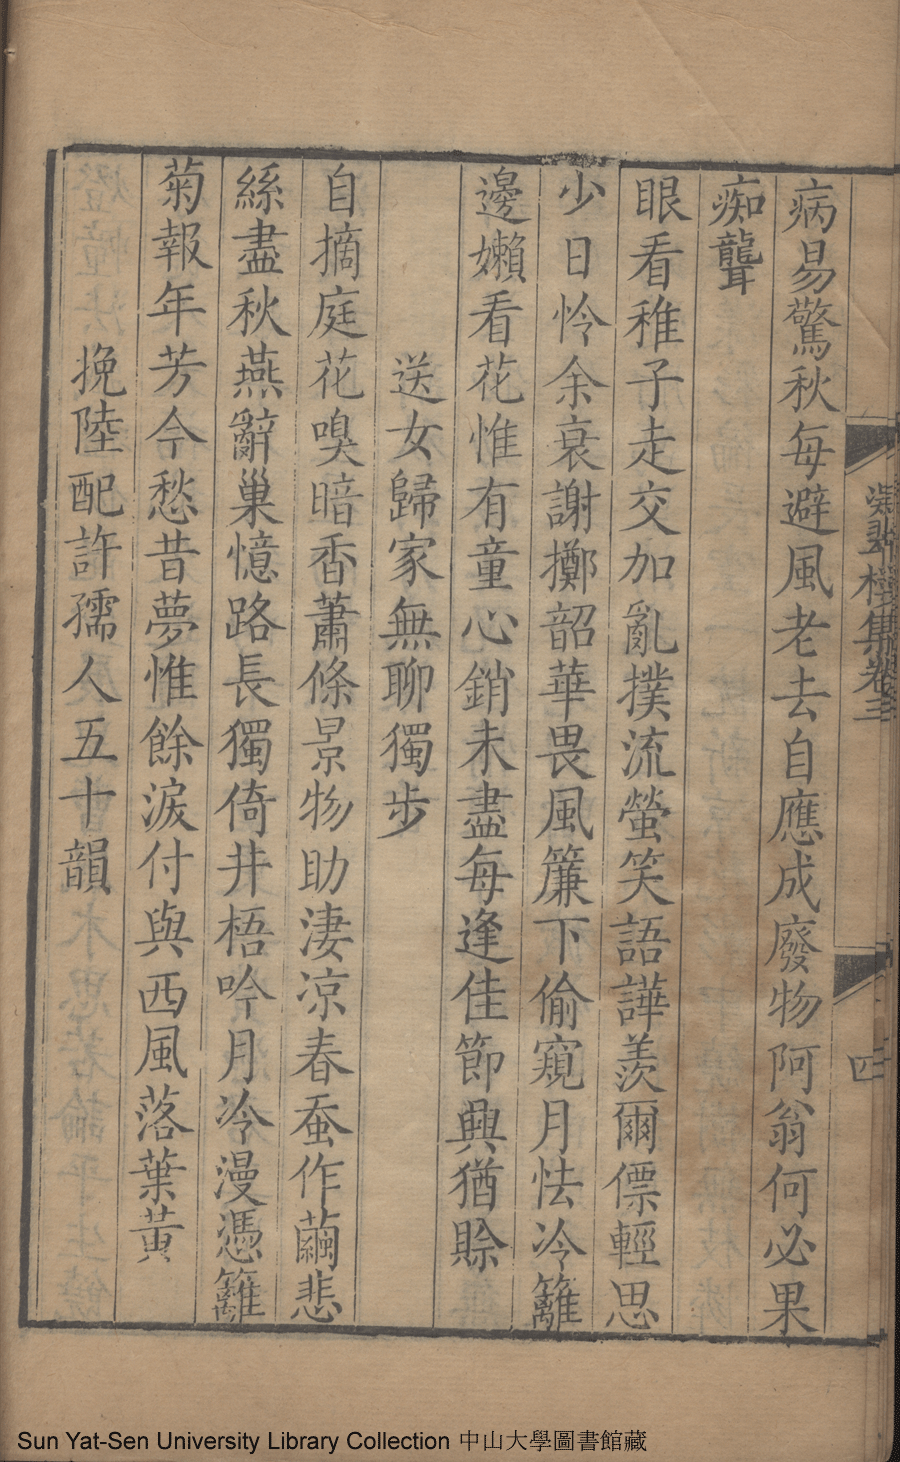 病易驚秋每避風老去自應成廢物阿翁何必果
痴聾
眼看稚子走交加亂撲流螢笑語譁羨爾僄輕思
少日怜余衰謝擲韶華畏風簾下偷窺月怯冷籬
邊嬾看花惟有童心銷未盡每逢佳節興猶賒
送女歸家無聊獨步
自摘庭花嗅暗香蕭條景物助淒凉春蚕作繭悲
絲盡秋燕辭巢憶路長獨倚井梧吟月冷漫憑籬
菊報年芳今愁昔夢惟餘淚付與西風落葉黄
挽陸配許孺人五十韻
集卷三
四
Sun Yat-Sen University Library Collection 中山大學圖書館藏